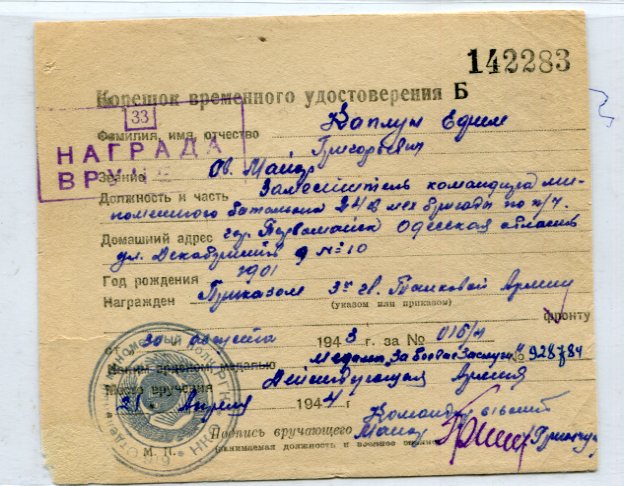 142283
Корешок временного удостоверения Б
33
НАГРАДА
ВРУЧЕ
Фамилия, имя, отчество Каплун Ефим
Григорьевич
Звание Гв. Майор
Должность и часть Заместитель командира ми-
нометного батальона бригады по п/ч.
Домашний адрес гор. Первомайск Одесская область
ул. Декабристов д №10
Год рождения 1901
Награжден Приказом 3й гв. Танковой Армии
(указом или приказом)
фронту
30 августа 1943 г. за № 016/н
Каким орденом, медалью Медаль "За Боевые Заслуги" № 928784
Место вручения Действующая Армия
21 Апреля 1944 г
Подпись вручающего Майор
(занимаемая должность и военное звание)
М. П.